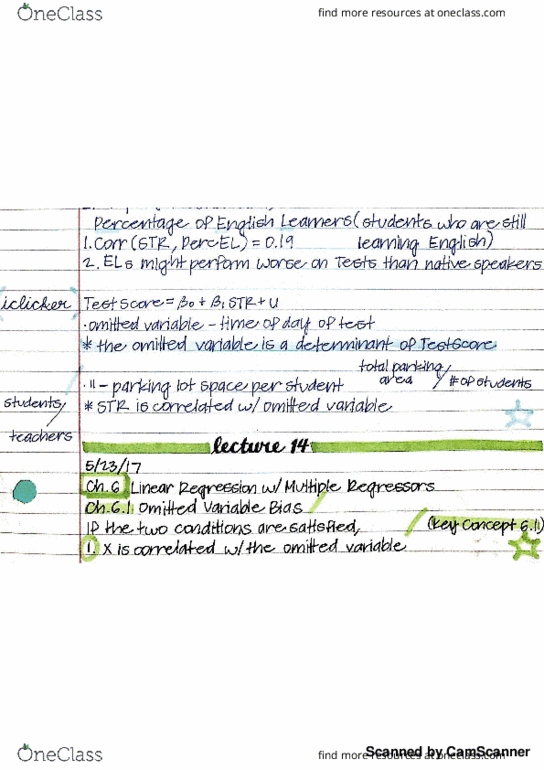 OneClass
find more resources at oneclass.com
Percentage of English Learners (students who are still
1. Corr (STR, PercEL) = 0.19 learning English)
2. ELs might perform worse on Tests than native speakers
iclicker Test Score = β0 + β1 STR + u
· omitted variable - time of day of test
* the omitted variable is a determinant of TestScore
total parking area / # of students
· 11 - parking lot space per student
students/ * STR is correlated w/ omitted variable
teachers
lecture 14
5/23/17
Ch. 6 Linear Regression w/ Multiple Regressors
Ch. 6.1 Omitted Variable Bias
IP the two conditions are satisfied, (Key Concept 6.1)
1. X is correlated w/ the omitted variable
OneClass
find more resources at oneclass.com
Scanned by CamScanner